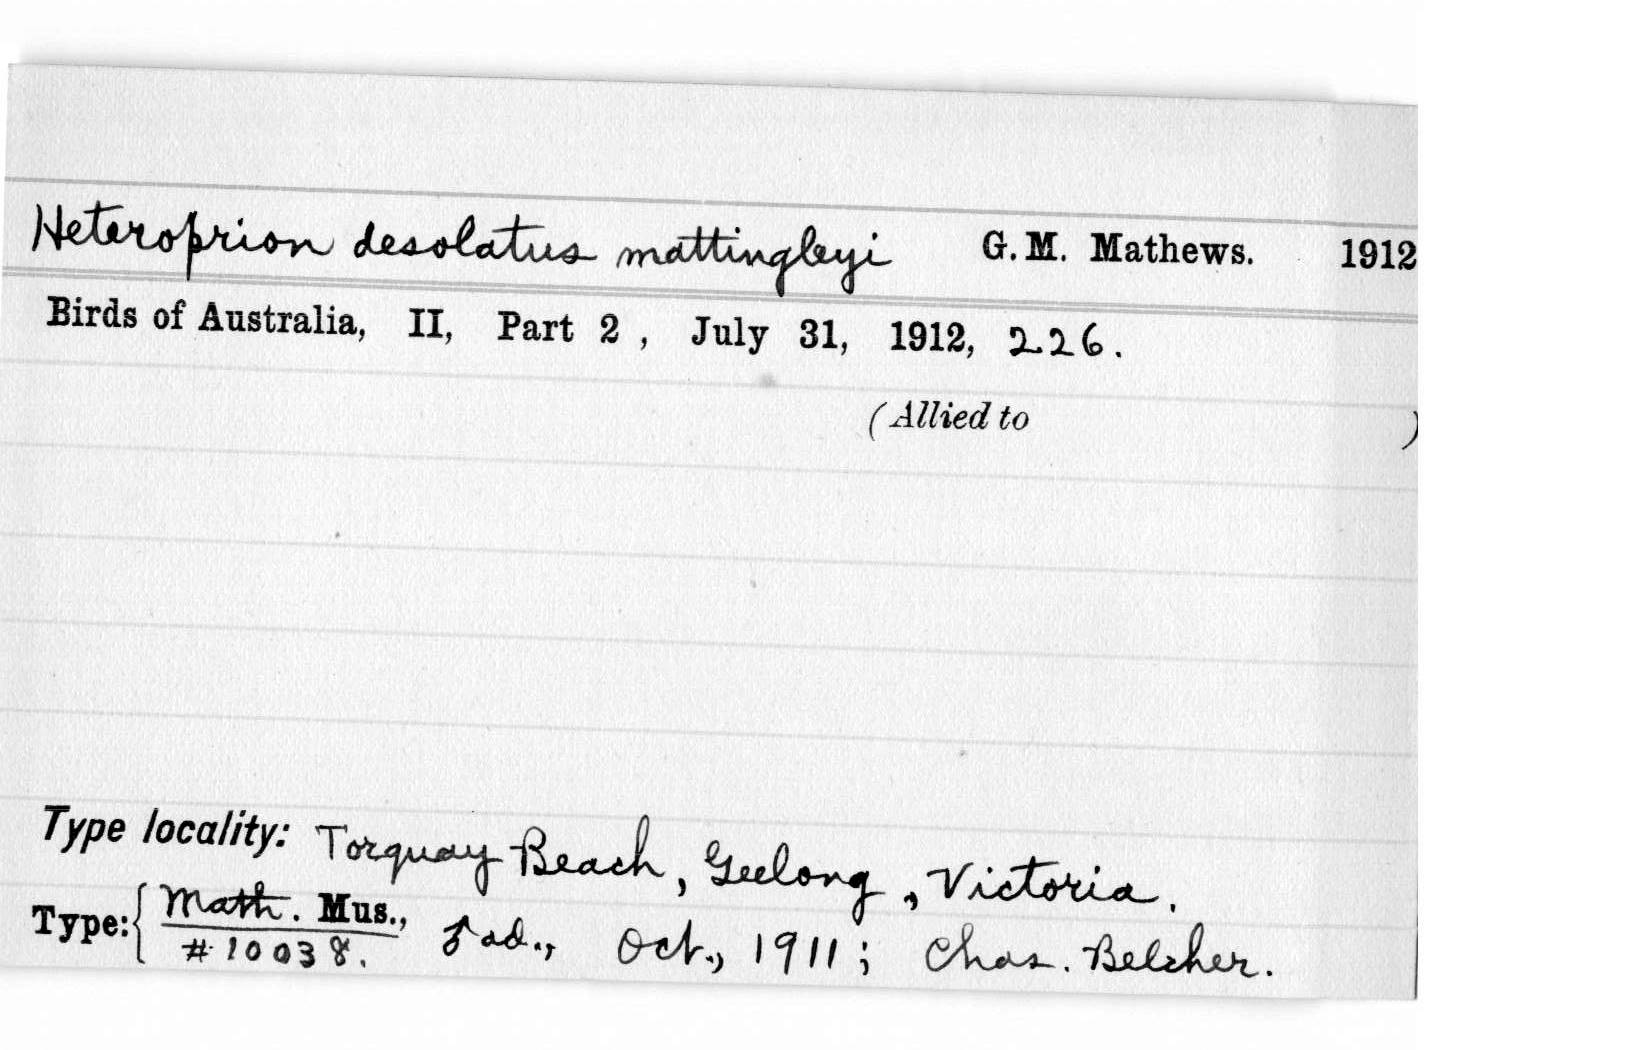 Heteroprion desolatus mattingleyi G. M. Mathews. 1912
Birds of Australia, II, Part 2 , July 31, 1912, 226.
(Allied to )
Type locality: Torquay Beach, Geelong, Victoria.
Type: { Math. Mus.,
#10038. ad., Oct., 1911; Chas. Belcher.